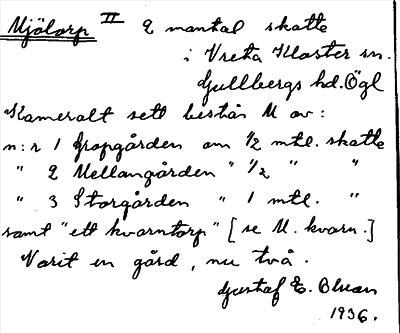 Mjölorp II 2 mantal skatte
i Vreta Kloster sn.
Gullbergs hd. Ögl
Kameralt sett består M av:
n:r 1 Gropgården om 1/2 mtl. skatte
" 2 Mellangården " 1/2 " "
" 3 Storgården " 1 mtl. "
samt "ett kvarntorp" [se M. kvarn.]
Varit en gård, nu två.
Gustaf E.
1936.